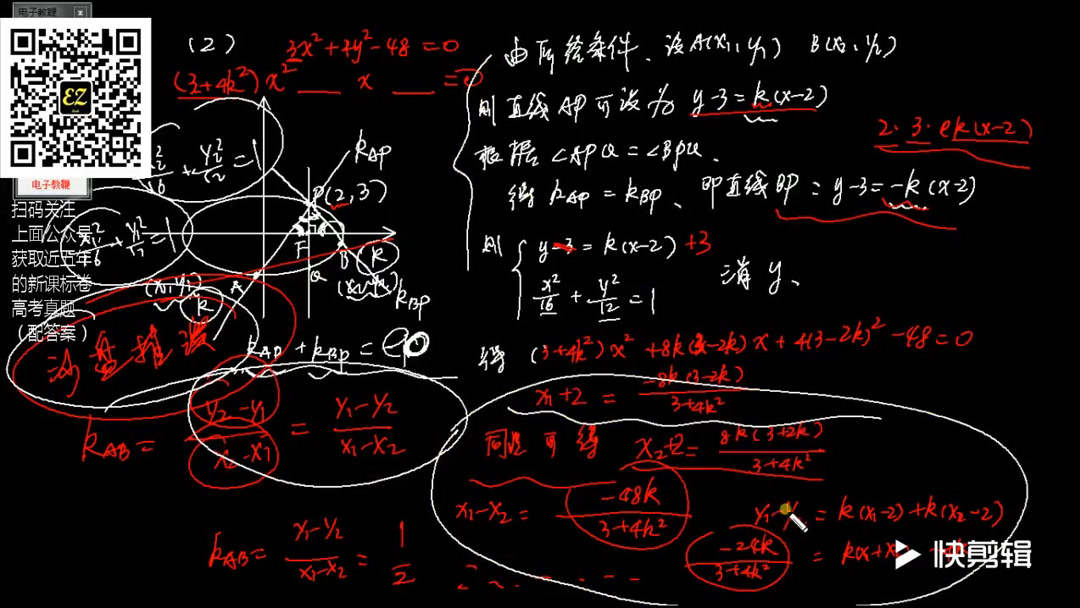 电子教鞭
EZ
电子教鞭
扫码关注
上面公众号
获取近五年
的新课标卷
高考真题
（配答案）
(2)
3x²+4y²-48=0
(3+4k²)x² ___ x ___ =0
+ y₂²/12 = 1
x₁²/16 + y₁²/12 = 1
k_AP
P(2,3)
F
Q
A
B
(k)
(x₁,y₁)
k
k_BP
沙盘推演
k_AP + k_BP = 0
k_AB = (y₂-y₁)/(x₂-x₁) = (y₁-y₂)/(x₁-x₂)
k_AB = (y₁-y₂)/(x₁-x₂) = 1/2
由所给条件、设A(x₁,y₁) B(x₂,y₂)
则直线AP可设为 y-3=k(x-2)
2.3.ek(x-2)
根据∠APQ=∠BPQ、
得 k_AP=k_BP、即直线BP：y-3=-k(x-2)
则 { y-3=k(x-2)+3
x²/16 + y²/12 = 1
消y、
得 (3+4k²)x²+8k(3-2k)x+4(3-2k)²-48=0
x₁+2 = -8k(3-2k)/(3+4k²)
同理可得 x₂+2 = 8k(3+2k)/(3+4k²)
x₁-x₂ = -48k/(3+4k²)
y₁-y₂ = k(x₁-2)+k(x₂-2)
-24k/(3+4k²) = k(x₁+x₂
快剪辑